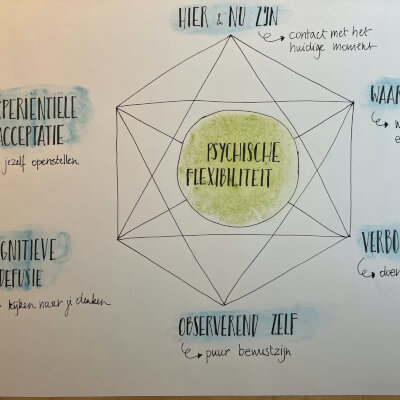 HIER & NU ZIJN
contact met het
huidige moment
XPERIËNTIËLE
ACCEPTATIE
jezelf openstellen
WAAR
PSYCHISCHE
FLEXIBILITEIT
GNITIEVE
DEFUSIE
kijken naar je denken
VERBO
doen
OBSERVEREND ZELF
puur bewustzijn